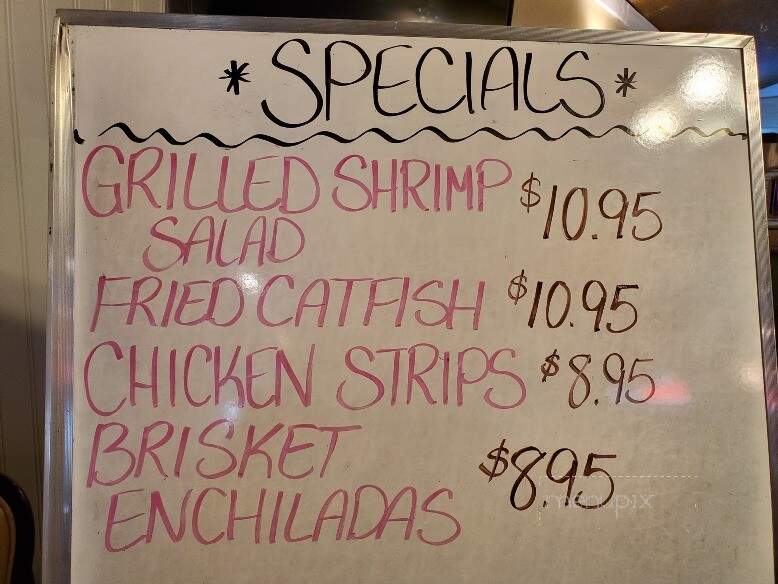 *SPECIALS*
GRILLED SHRIMP $10.95
SALAD
FRIED CATFISH $10.95
CHICKEN STRIPS $8.95
BRISKET
ENCHILADAS $8.95
menupix